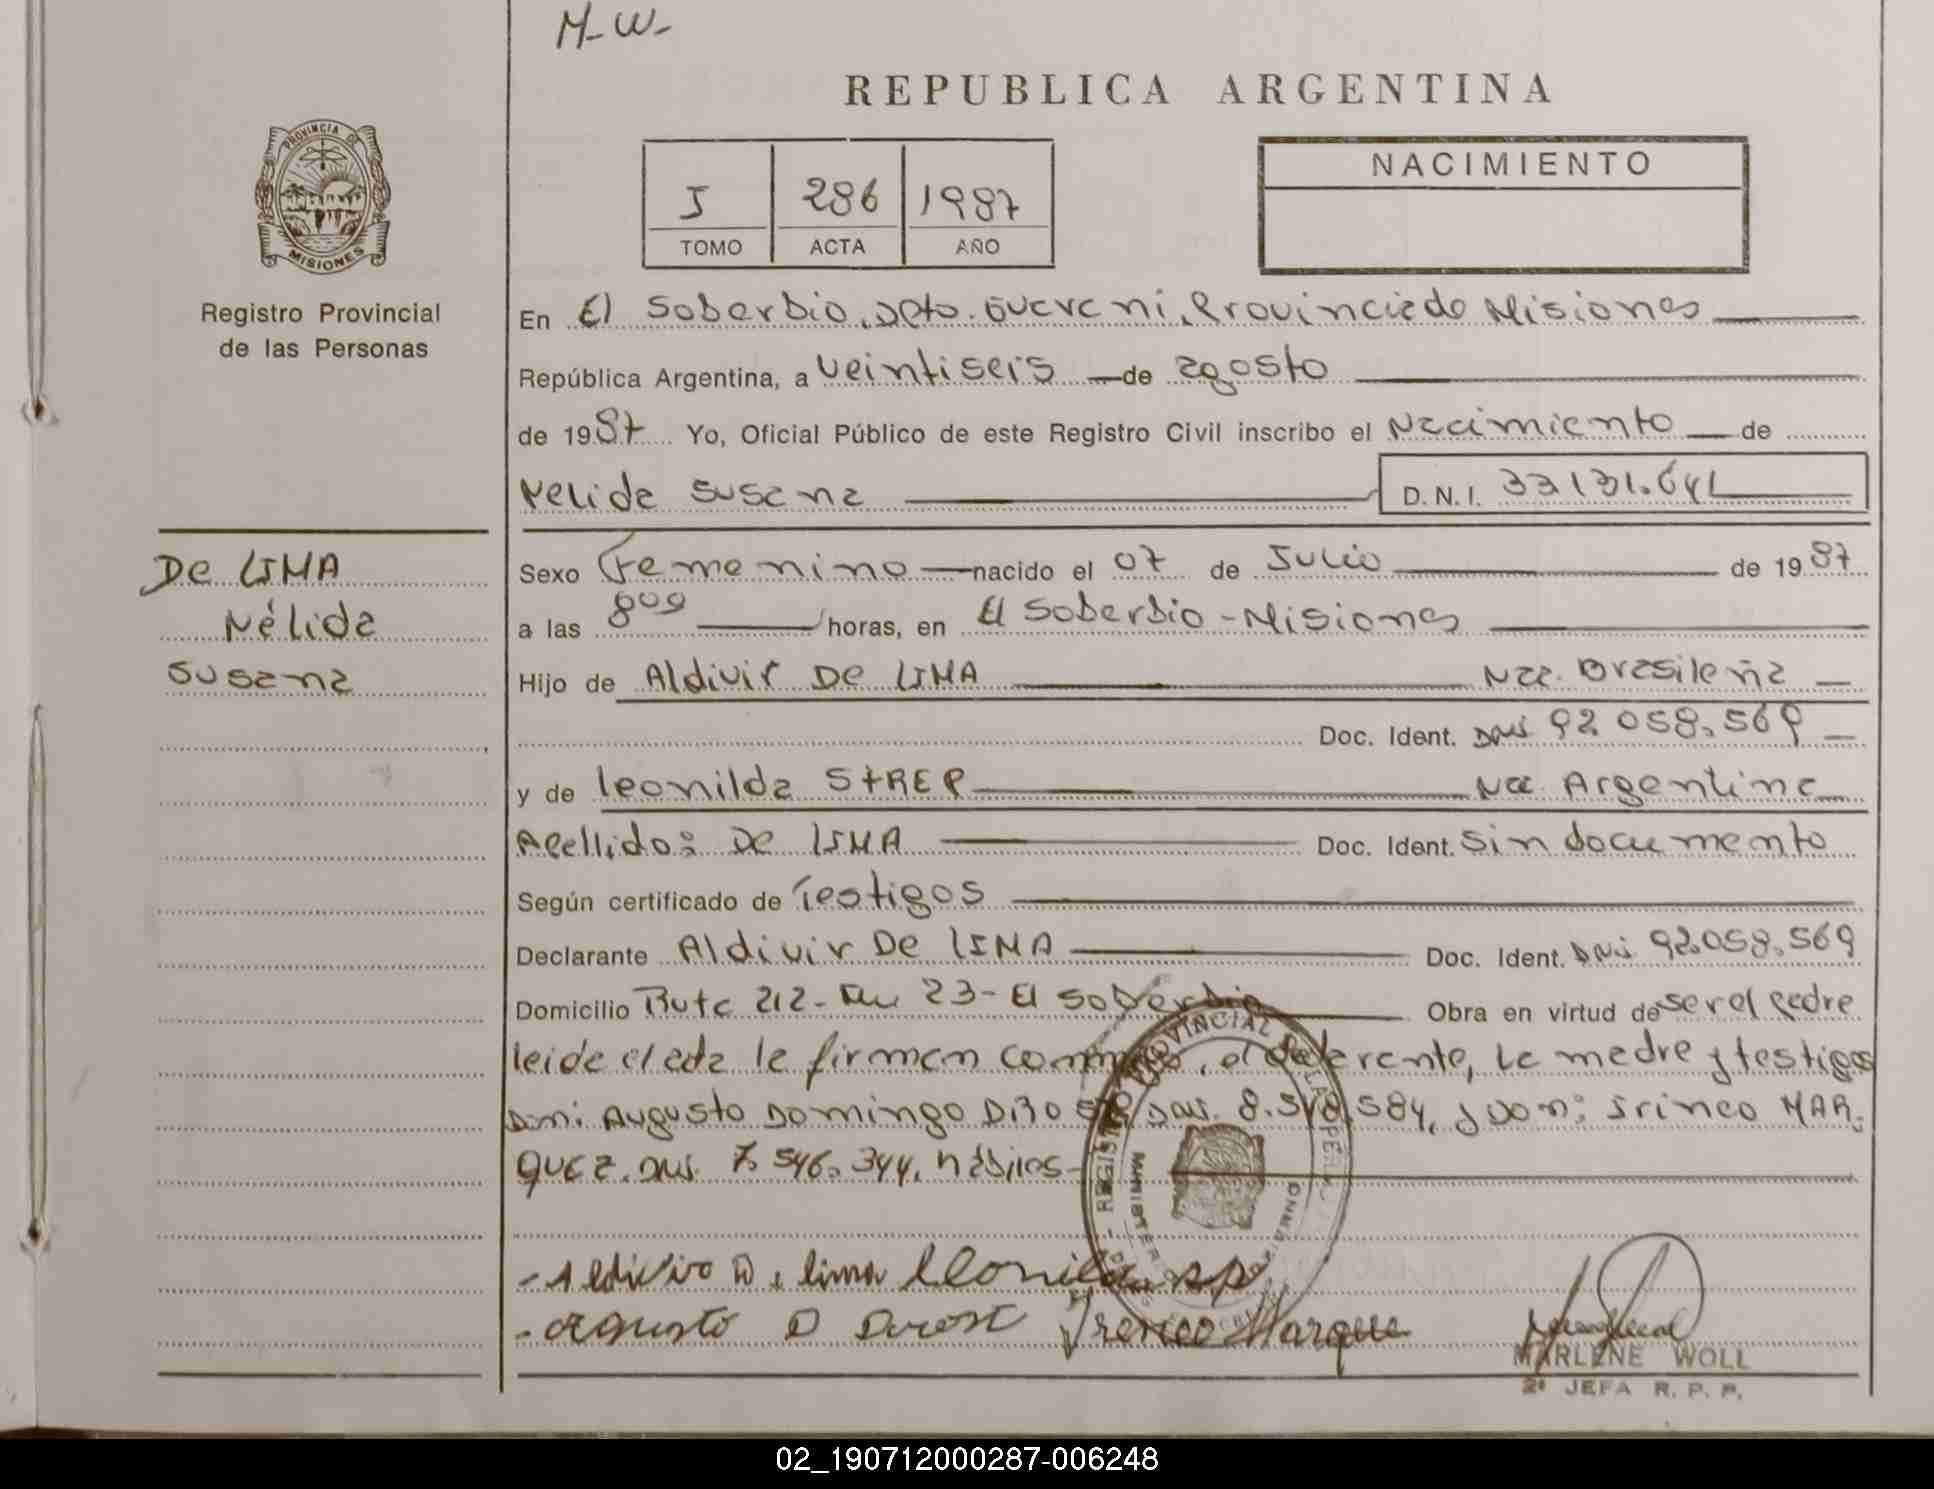 M-W-
REPUBLICA ARGENTINA
PROVINCIA DE
MISIONES
I 286 1987
TOMO ACTA AÑO
NACIMIENTO
Registro Provincial
de las Personas
En El Soberbio, Dpto. Guarani, Provincia de Misiones
República Argentina, a veintiseis de agosto
de 1987 Yo, Oficial Público de este Registro Civil inscribo el Nacimiento de
Nelida Susana D.N.I. 33131.641
De LIMA
Nélida
Susana
Sexo Femenino nacido el 07 de Julio de 1987
a las 800 horas, en El Soberbio - Misiones
Hijo de Aldivir De LIMA Nac. Brasileña
Doc. Ident. DNI 92 058.569
y de Leonilda STREP Nac. Argentina
Apellido: De LIMA Doc. Ident. sin documento
Según certificado de Testigos
Declarante Aldivir De LIMA Doc. Ident. DNI 92.058.569
Domicilio Ruta 212 - Km 23 - El Soberbio Obra en virtud de ser el padre
leida el acta la firman conmigo, el declarante, la madre y testigos
Don: Augusto Domingo DNI. 8.518.584, y Don: Irineo MAR-
QUEZ. DNI. 7.546.344, hábiles-
REGISTRO PROVINCIAL DE LAS PER
MINISTERIO
- Aldivio D. lima Leonilda
- Agusto D Dorost Ireneo Marque
MARLENE WOLL
2ª JEFA R. P. P.
02_190712000287-006248